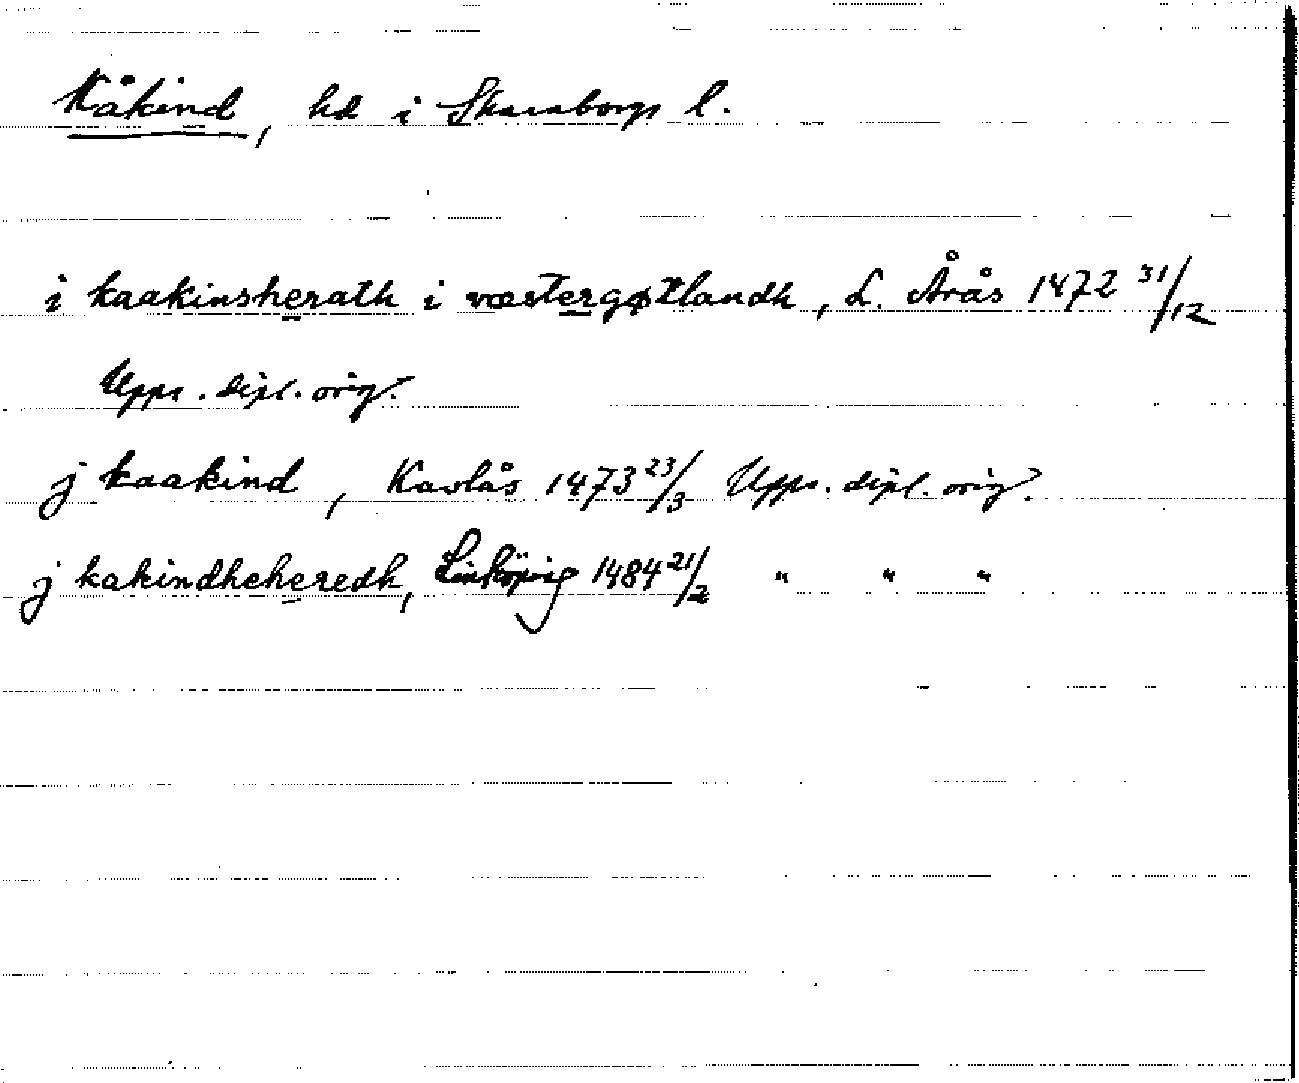 Kåkind, hd i Skaraborgs l.
i kaakinsherath i væstergøtlandh, L. Årås 1472 31/12
Upps. dipl. orig.
j kaakind, Kavlås 1473 23/3 Upps. dipl. orig.
j kakindheheredh, Linköping 1484 21/2 " " "